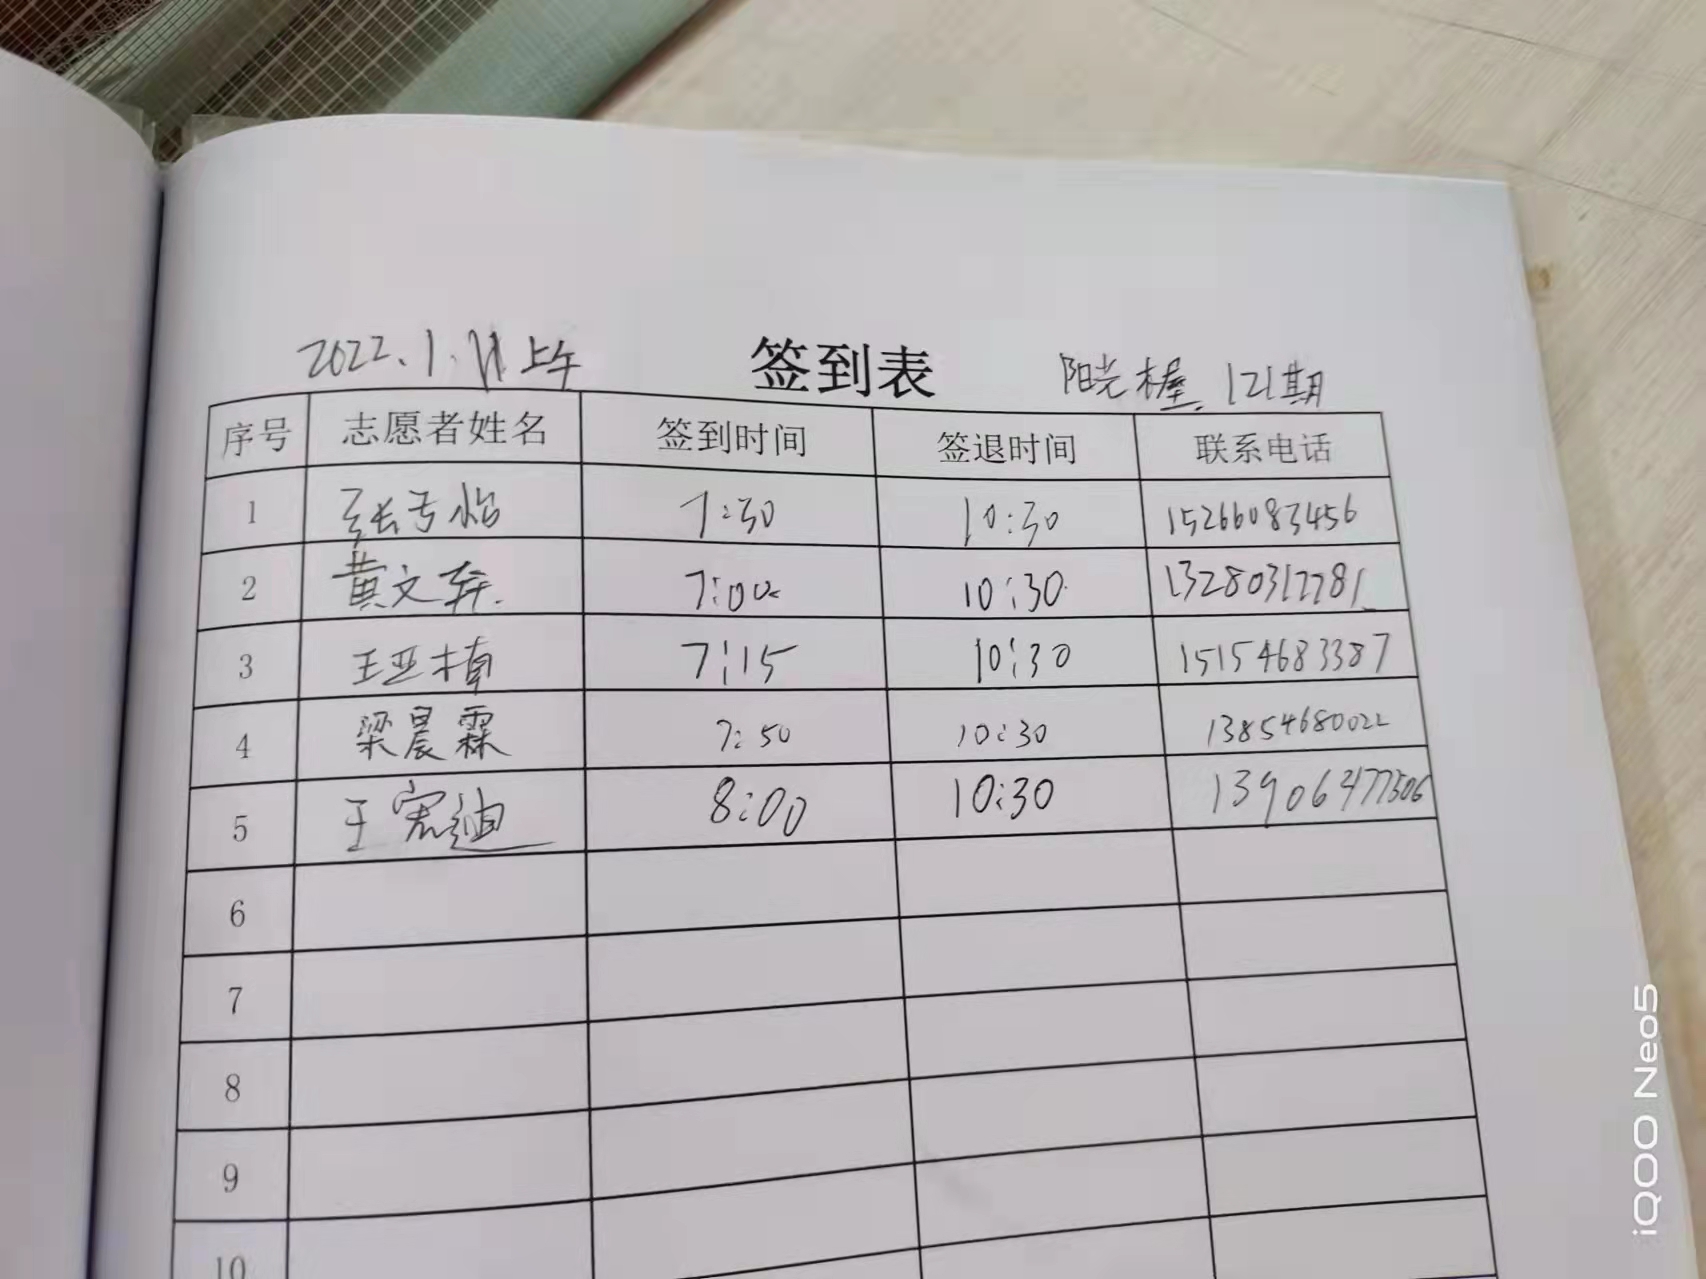 2022.1.11上午 签到表 阳光木屋 121期
序号 志愿者姓名 签到时间 签退时间 联系电话
1 张 怡 7:30 10:30 15266083456
2 黄文 7:00 10:30 13280317781
3 王亚楠 7:15 10:30 15154683387
4 梁晨霖 7:50 10:30 13854680022
5 王宪迪 8:00 10:30 13906477306
6
7
8
9
10
iQOO Neo5